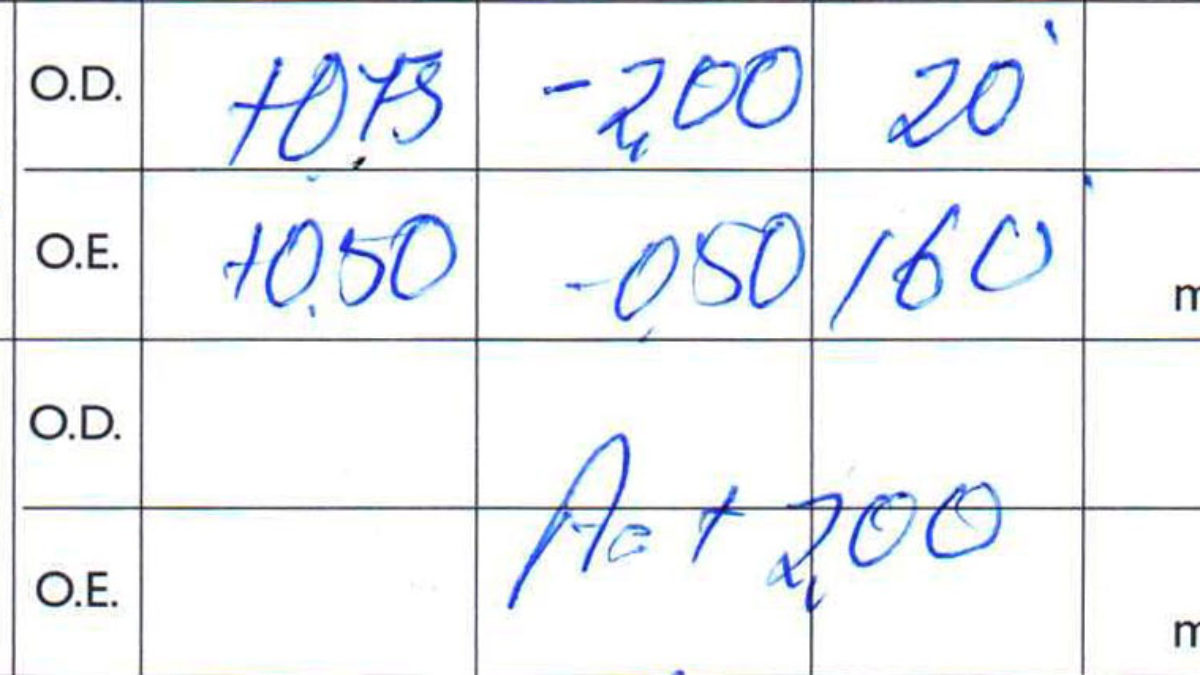 O.D. +0,75 -2,00 20°
O.E. +0,50 -0,50 160° m
O.D.
Ad + 2,00
O.E. m